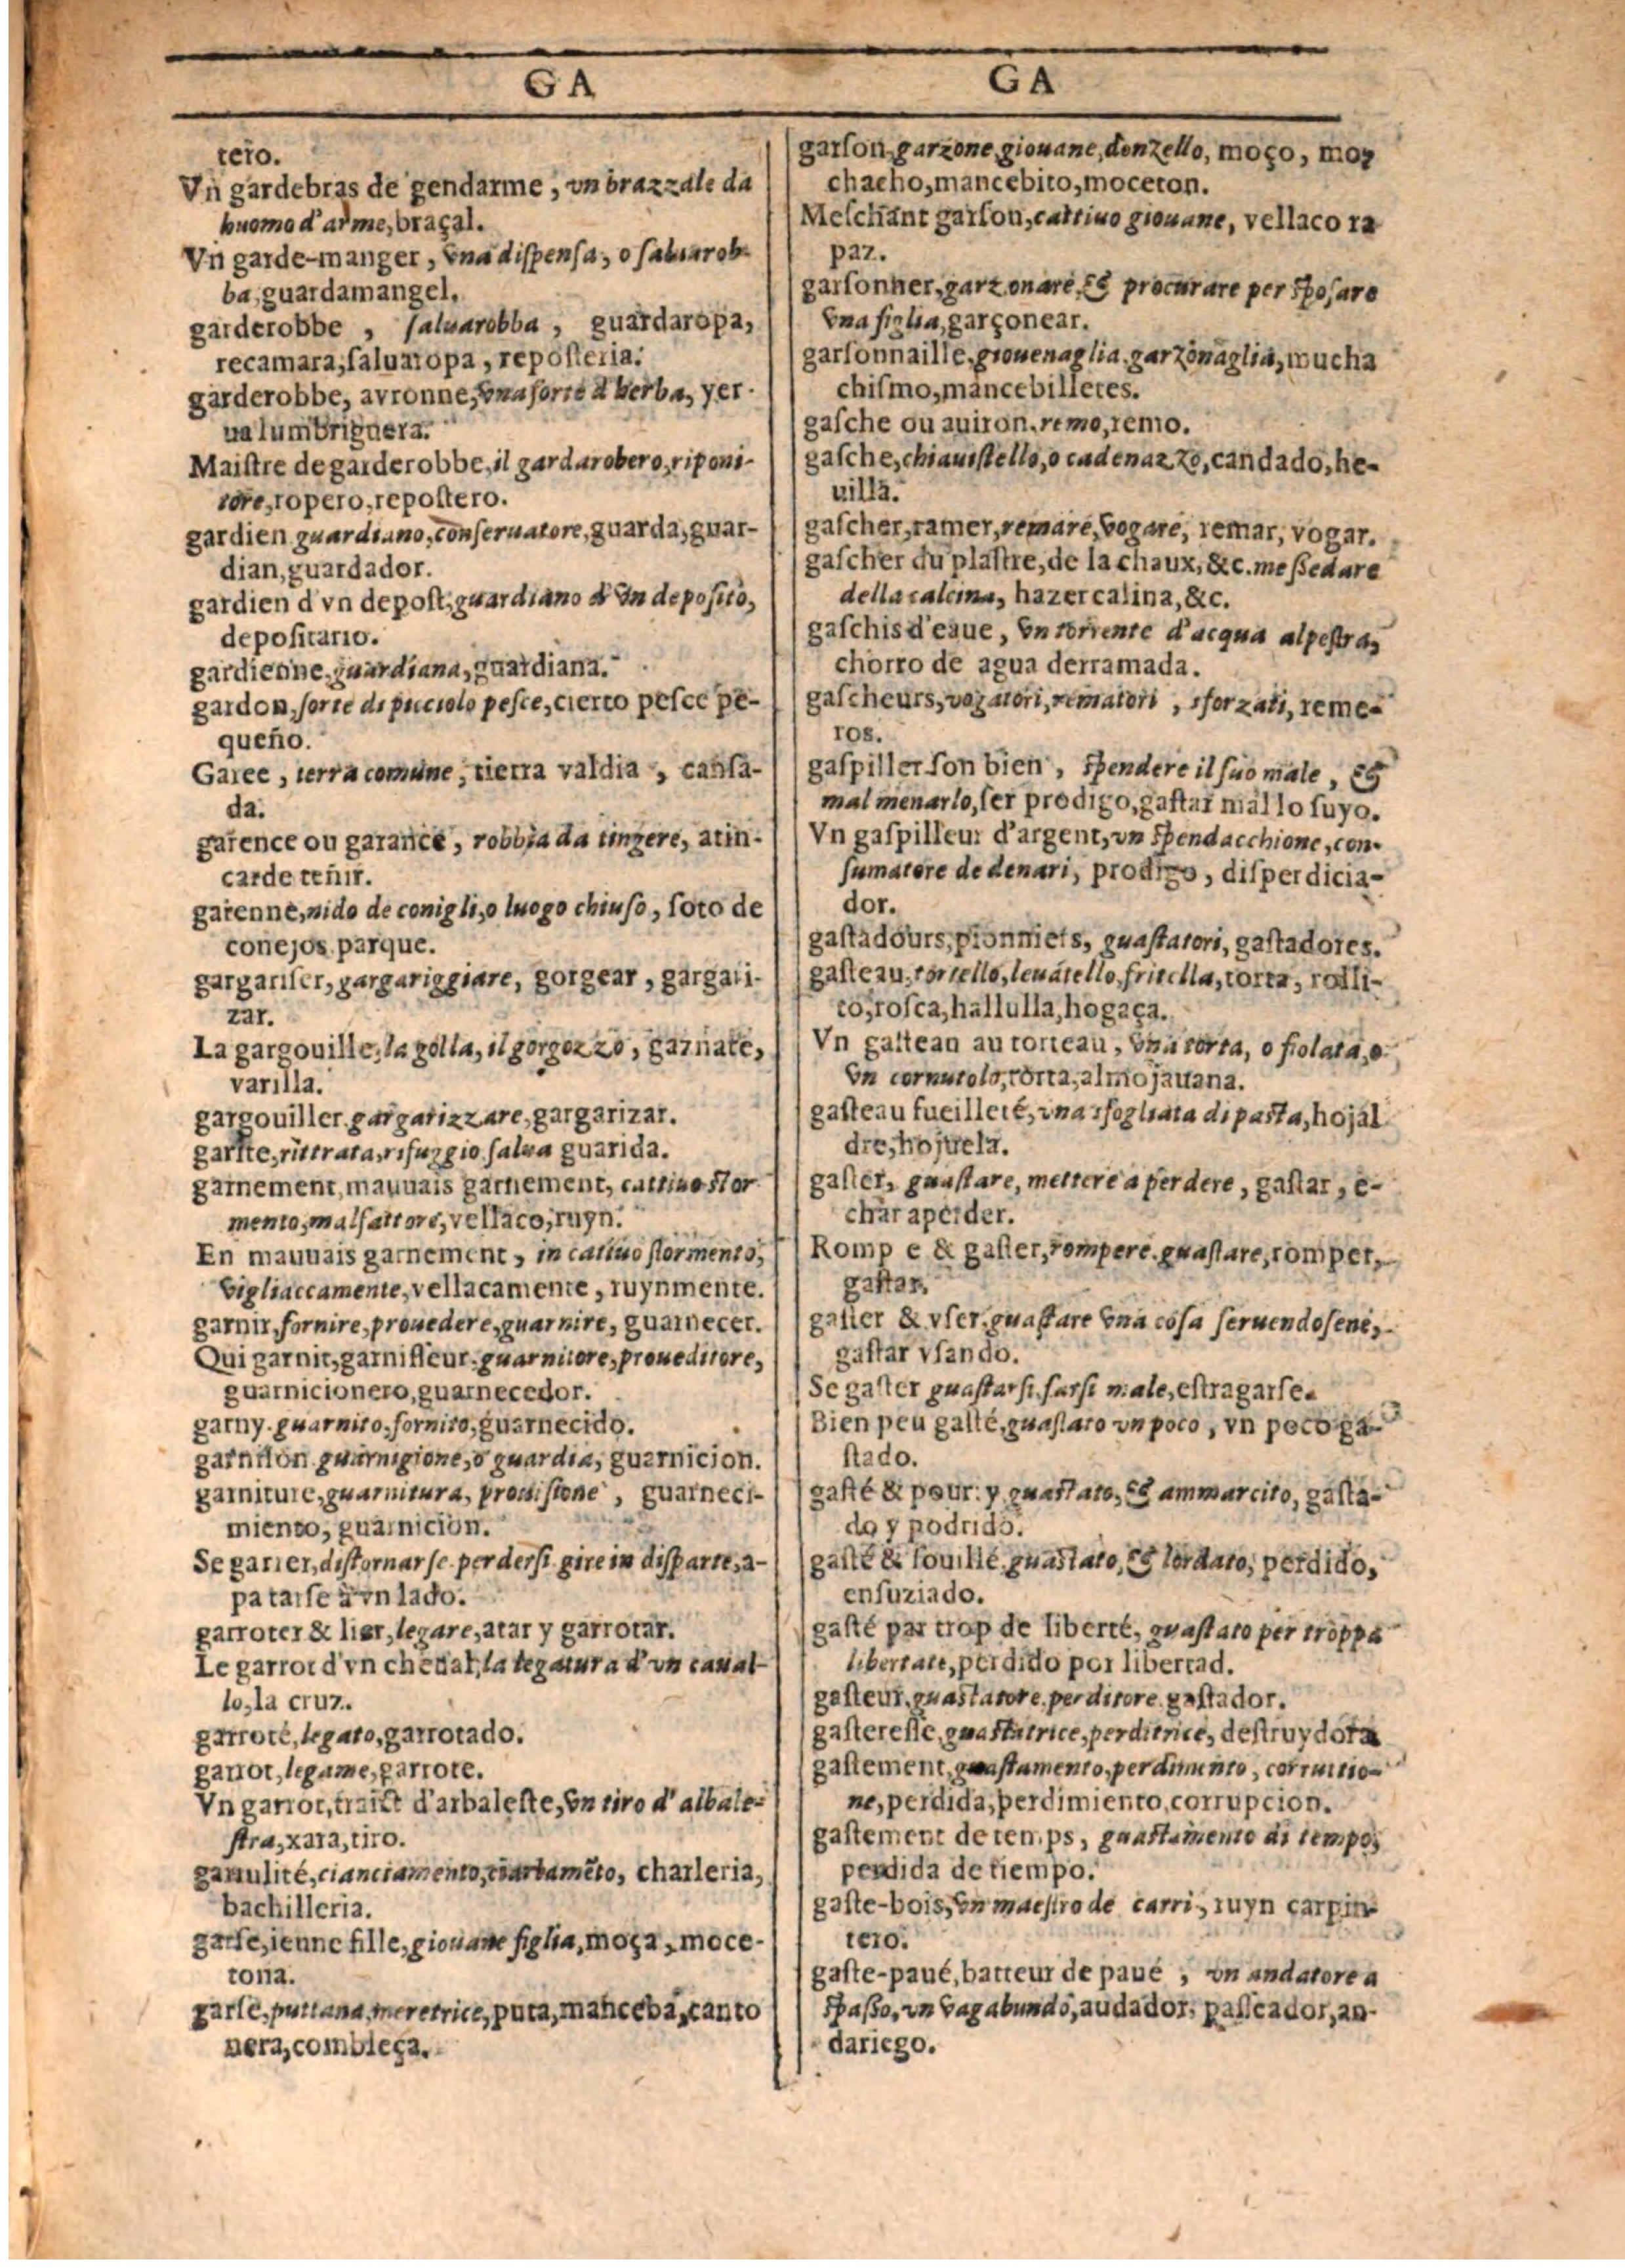 GA
GA
tero.
Vn gardebras de gendarme, vn brazzale da
huomo d'arme, braçal.
Vn garde-manger, vna diſpenſa, o saluarob-
ba, guardamangel.
garderobbe, ſaluarobba, guardaropa,
recamara, ſaluaropa, repoſteria.
garderobbe, avronne, vna ſorte d'herba, yer-
ua lumbriguera.
Maiſtre de garderobbe, il gardarobero, riponi-
tore, ropero, repoſtero.
gardien guardiano, conſeruatore, guarda, guar-
dian, guardador.
gardien d'vn depoſt, guardiano d'vn depoſito,
depoſitario.
gardienne, guardiana, guardiana.
gardon, ſorte di picciolo peſce, cierto peſce pe-
queño.
Garee, terra comune, tierra valdia, canſa-
da.
garence ou garance, robbia da tingere, atin-
carde teñir.
garenne, nido de conigli, o luogo chiuſo, ſoto de
conejos parque.
gargariſer, gargariggiare, gorgear, gargari-
zar.
La gargouille, la golla, il gorgozzo, gaznate,
varilla.
gargouiller gargarizzare, gargarizar.
garite, rittrata, rifuggio ſalua guarida.
garnement, mauuais garnement, cattiuo ſtor
mento, malfattore, vellaco, ruyn.
En mauuais garnement, in cattiuo ſtormento,
vigliaccamente, vellacamente, ruynmente.
garnir, fornire, prouedere, guarnire, guarnecer.
Qui garnit, garniſſeur, guarnitore, proueditore,
guarnicionero, guarnecedor.
garny guarnito, fornito, guarnecido.
garniſon guarnigione, o guardia, guarnicion.
garniture, guarnitura, prouiſione, guarneci-
miento, guarnicion.
Se garrer, diſtornarſe perderſi gire in diſparte, a-
patarſe à vn lado.
garroter & lier, legare, atar y garrotar.
Le garrot d'vn cheual, la legatura d'vn caual-
lo, la cruz.
garroté, legato, garrotado.
garrot, legame, garrote.
Vn garrot, traict d'arbaleſte, vn tiro d'albale-
ſtra, xara, tiro.
garrulité, cianciamento, ciarlamẽto, charleria,
bachilleria.
garſe, ieune fille, giouane figlia, moça, moce-
tona.
garſe, puttana, meretrice, puta, manceba, canto
nera, combleça.
garſon, garzone, giouane, donzello, moço, moz
chacho, mancebito, moceton.
Meſchant garſon, cattiuo giouane, vellaco ra
paz.
garſonner, garzonare, & procurare per ſpoſare
vna figlia, garçonear.
garſonnaille, giouenaglia, garzonaglia, mucha
chiſmo, mancebilletes.
gaſche ou auiron, remo, remo.
gaſche, chiauiſtello, o cadenazzo, candado, he-
uilla.
gaſcher, ramer, remare, vogare, remar, vogar.
gaſcher du plaſtre, de la chaux, &c. meſſedare
della calcina, hazer calina, &c.
gaſchis d'eaue, vn torrente d'acqua alpeſtra,
chorro de agua derramada.
gaſcheurs, vogatori, rematori, sforzati, reme-
ros.
gaſpiller ſon bien, ſpendere il ſuo male, &
mal menarlo, ſer prodigo, gaſtar mal lo ſuyo.
Vn gaſpilleur d'argent, vn ſpendacchione, con-
ſumatore de denari, prodigo, diſperdicia-
dor.
gaſtadours, pionniers, guaſtatori, gaſtadores.
gaſteau, tortello, leuatello, fritella, torta, rolli-
to, roſca, hallulla, hogaça.
Vn gaſteau au torteau, vna torta, o fiolata, o
vn cornutolo, torta, almojauana.
gaſteau fueilleté, vna sfogliata di paſta, hojal
dre, hojuela.
gaſter, guaſtare, mettere a perdere, gaſtar, e-
char aperder.
Romp e & gaſter, rompere guaſtare, romper,
gaſtar.
gaſter & vſer, guaſtare vna coſa ſeruendoſene,
gaſtar vſando.
Se gaſter guaſtarſi, farſi male, eſtragarſe.
Bien peu gaſté, guaſtato vn poco, vn poco ga-
ſtado.
gaſté & pourry guaſtato, & ammarcito, gaſta-
do y podrido.
gaſté & ſouillé guaſtato, & lordato, perdido,
enſuziado.
gaſté par trop de liberté, guaſtato per troppa
libertate, perdido por libertad.
gaſteur, guaſtatore perditore gaſtador.
gaſtereſſe, guaſtatrice, perditrice, deſtruydora
gaſtement, guaſtamento, perdimento, corruttio-
ne, perdida, perdimiento, corrupcion.
gaſtement de temps, guaſtamento di tempo,
perdida de tiempo.
gaſte-bois, vn maeſtro de carri, ruyn carpin-
tero.
gaſte-paué, batteur de paué, vn andatore a
ſpaſſo, vn vagabundo, audador, paſſeador, an-
dariego.